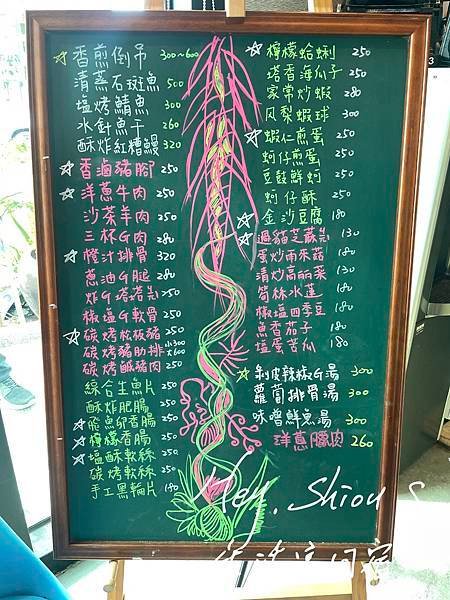 ☆香煎倒吊 300~600
清蒸石斑魚 500
塩烤鯖魚 300
水針魚干 260
酥炸紅糟鰻 320
☆香滷豬腳 250
☆洋蔥牛肉 250
沙茶羊肉 250
三杯G肉 280
☆橙汁排骨 320
蔥油G腿 280
炸G塔塔 250
椒塩G軟骨 250
☆碳烤松板豬 250
碳烤豬肋排 小300 大600
碳烤鹹豬肉 250
綜合生魚片 250
酥炸肥腸 250
☆飛魚卵香腸 250
☆檸檬香腸 250
☆塩酥軟絲 250
碳烤軟絲 250
手工黑輪片 140
☆檸檬蛤蜊 250
塔香海瓜子 250
家常炒蝦 280
凤梨蝦球 300
☆蝦仁煎蛋 250
蚵仔煎蛋 250
豆豉鮮蚵 250
蚵仔酥 250
☆金沙豆腐 180
☆過貓芝蔴 130
蛋炒雨來菇 180
清炒高麗菜 130
筍絲水蓮 180
椒塩四季豆 180
魚香茄子 180
塩蛋苦瓜 180
☆剝皮辣椒G湯 300
蘿蔔排骨湯 300
味噌鮮魚湯 300
洋蔥臘肉 260
Hey. Shiou's